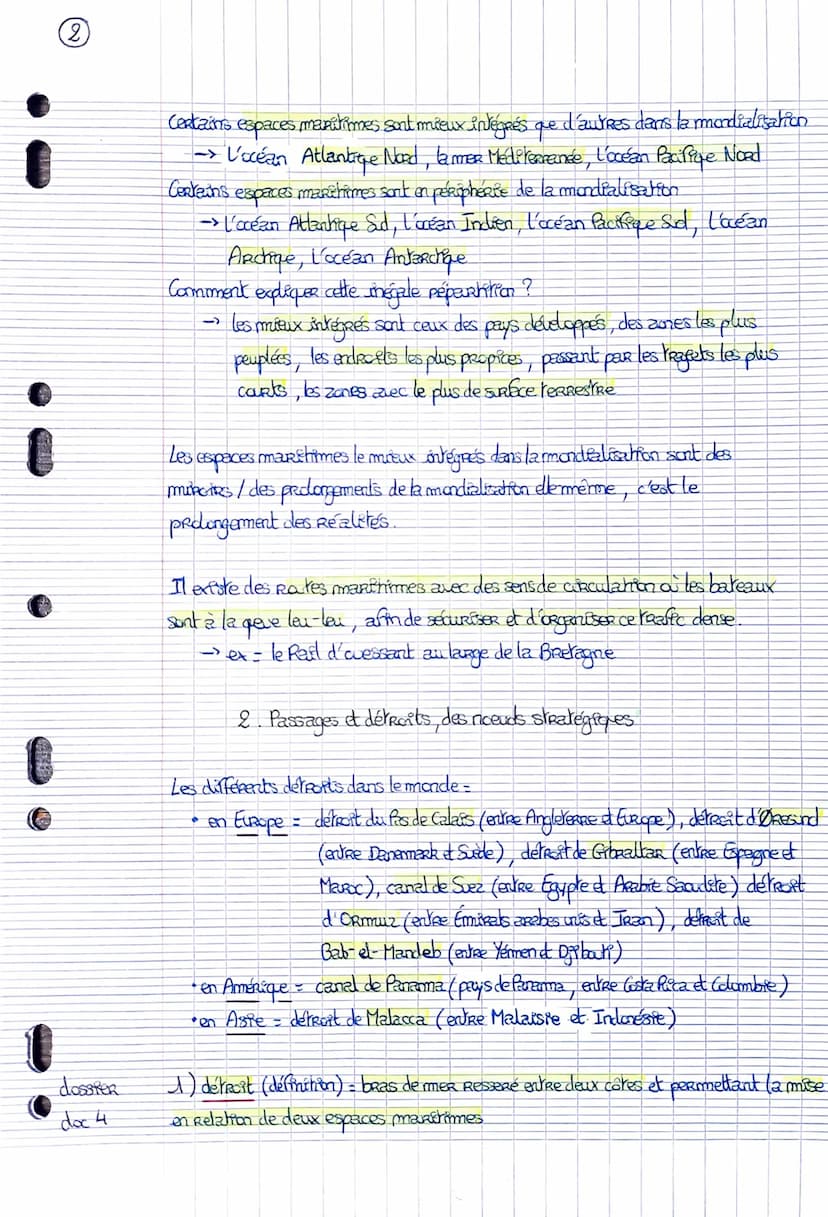 2
Certains espaces maritimes sont mieux intégrés que d'autres dans la mondialisation
→ L'océan Atlantique Nord, la mer Méditerranée, l'océan Pacifique Nord
Certains espaces maritimes sont en périphérie de la mondialisation
→ L'océan Atlantique Sud, l'océan Indien, l'océan Pacifique Sud, l'océan
Arctique, l'océan Antarctique
Comment expliquer cette inégale répartition ?
→ les mieux intégrés sont ceux des pays développés, des zones les plus
peuplées, les endroits les plus propices, passant par les trajets les plus
courts, les zones avec le plus de surface terrestre
Les espaces maritimes le mieux intégrés dans la mondialisation sont des
miroirs / des prolongements de la mondialisation elle même, c'est le
prolongement des réalités.
Il existe des routes maritimes avec des sens de circulation où les bateaux
sont à la queue leu-leu, afin de sécuriser et d'organiser ce trafic dense.
→ ex = le Rail d'ouessant au large de la Bretagne
2. Passages et détroits, des noeuds stratégiques
Les différents détroits dans le monde =
• en Europe = détroit du Pas de Calais (entre Angleterre et Europe), détroit d'Øresund
(entre Danemark et Suède), détroit de Gibraltar (entre Espagne et
Maroc), canal de Suez (entre Égypte et Arabie Saoudite) détroit
d'Ormuz (entre Émirats arabes unis et Iran), détroit de
Bab-el-Mandeb (entre Yémen et Djibouti)
• en Amérique = canal de Panama (pays de Panama, entre Costa Rica et Colombie)
• en Asie = détroit de Malacca (entre Malaisie et Indonésie)
dossier 1) détroit (définition) = bras de mer resseré entre deux côtes et permettant la mise
doc 4 en relation de deux espaces maritimes